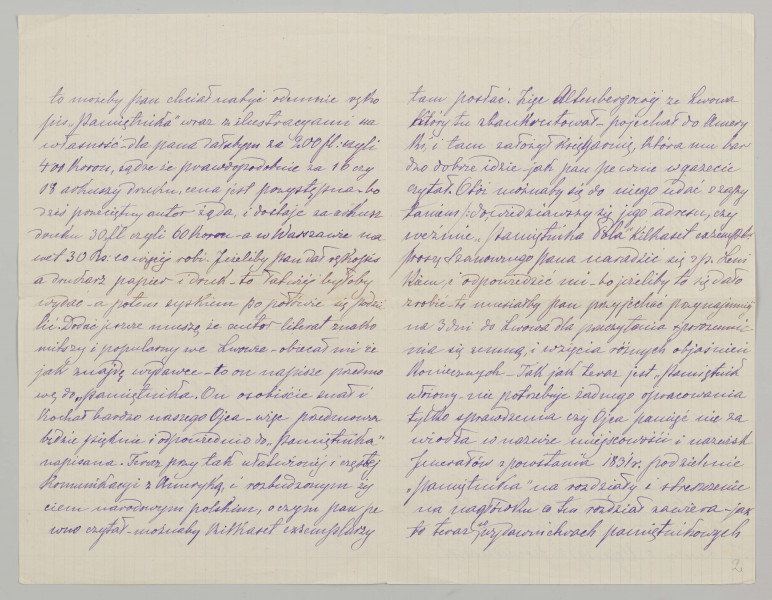 to możeby pan chciał nabyć odemnie ręko
pis „Pamiętnika" wraz z ilustracyami na
własność - dla pana dałabym za 200 fl: czyli
400 koron, sądzę że prawdopodobnie za 16 czy
18 arkuszy druku, cena jest przystępna - bo
dziś pośredni autor żąda, i dostaje za arkusz
druku 30 fl czyli 60 koron - a w Warszawie na
wet 30 Rs: co więcej robi. Jeżeliby pan dał rękopis
a drukarz papier i druk - to łatwiej byłoby
wydać - a potem zyskiem po połowie się podzie
lić. Dodać jeszcze muszę że autor literat znako
mitszy i popularny we Lwowie - obiecał mi że
jak znajdę wydawcę - to on napisze przedmo
wę do „Pamiętnika. On osobiście znał i
kochał bardzo naszego Ojca - więc przedmowa
będzie pięknie i odpowiednio do „Pamiętnika"
napisana. Teraz przy tak ułatwionej i częstej
komunikacji z Ameryką, i rozbudzonym ży
ciem narodowym polskim, o czym pan pe
wno czytał - możnaby kilkaset exemplarzy
tam posłać. Żyje Altenbergowój ze Lwowa
który tu zbankrutował - pojechał do Amery
ki, i tam założył księgarnię, która mu bar
dzo dobrze idzie - jak pan pewnie w gazecie
czytał. Otóż możnaby się do niego udać z zapy
taniem /: dowiedziawszy się jego adresu, czy
weźmie „Pamiętnika Pola" kilkaset exempl:
proszę Szanownego pana naradzić się z p.
i odpowiedzieć mi - bo jeżeliby to się dało
zrobić - to musiałby pan przyjechać przynajmniej
na 3 dni do Lwowa dla poczytania i porozumie
nia się zemną, i wzięcia różnych objaśnień
koniecznych - Tak jak teraz jest „Pamiętnik
ułożony - nie potrzebuje żadnego opracowania
tylko sprawdzenia czy Ojca pamięć nie za
wiodła w nazwie miejscowości i nazwisk
Jenerałów z powstania 1831 r. podzielenie
„Pamiętnika" na rozdziały i streszczenie
na nagłówku co ten rozdział zawiera - jak
to teraz w wydawnictwach pamiętnikowych
2.